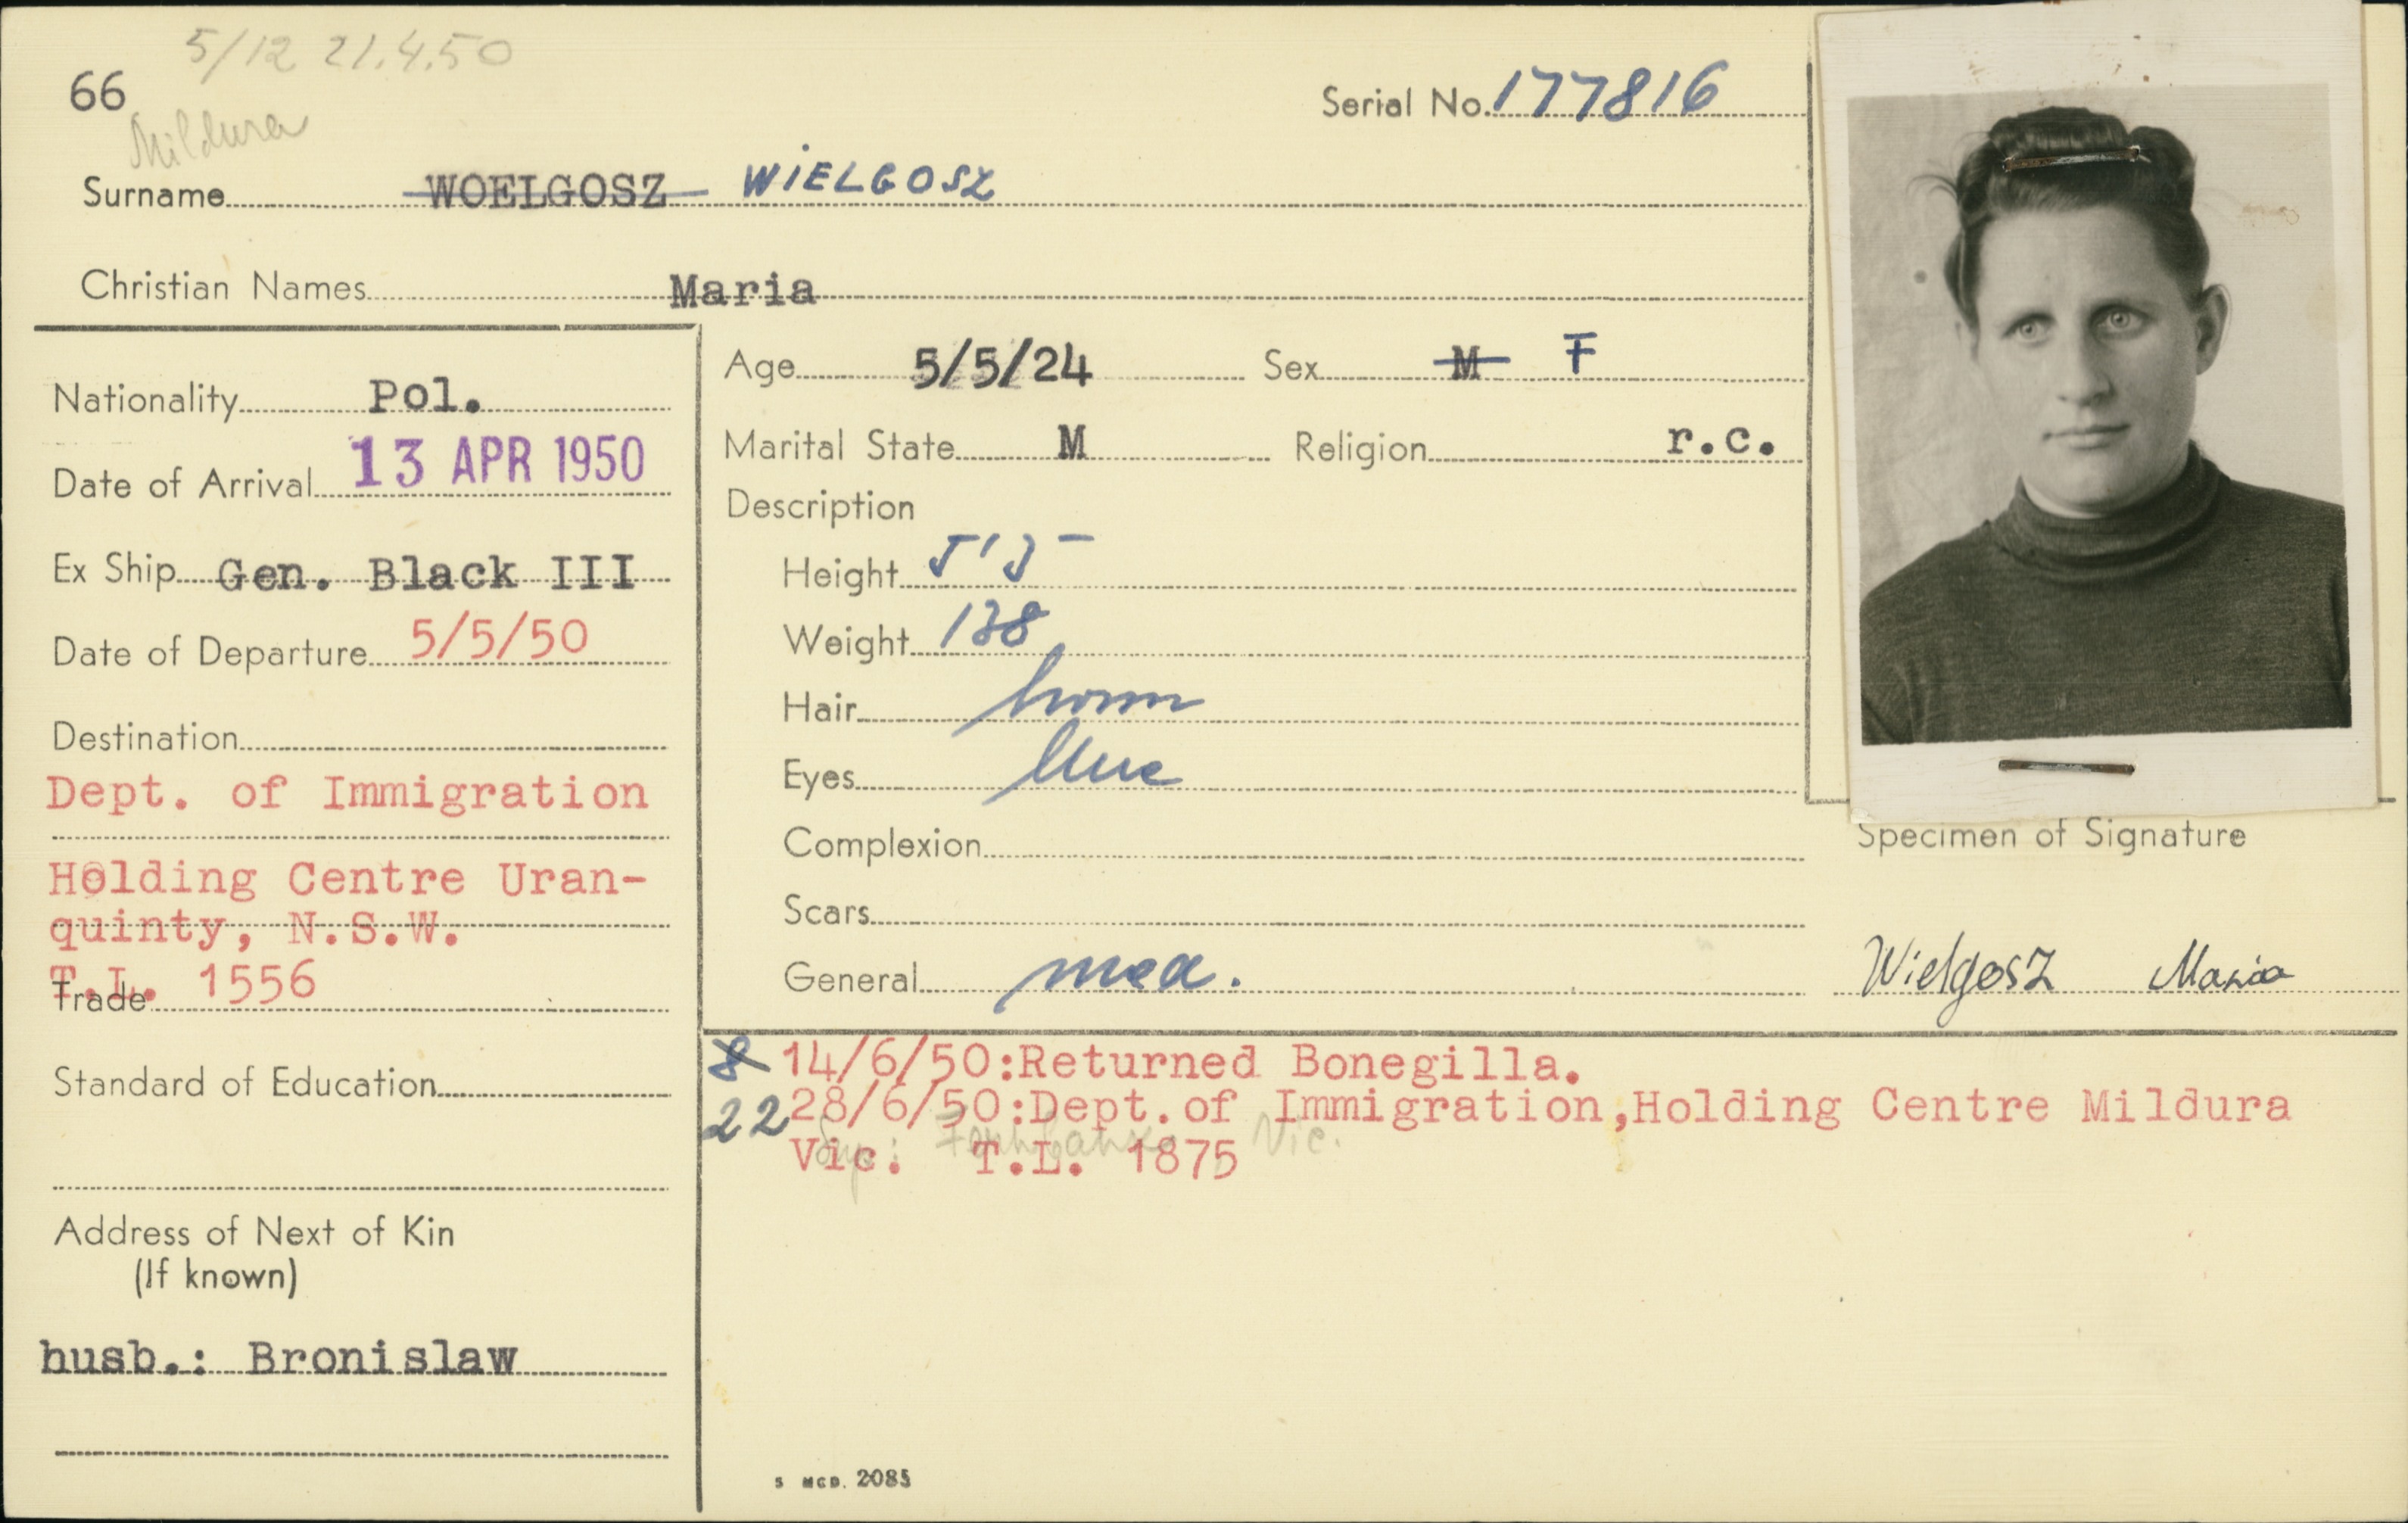 5/12 21.4.50
66
Mildura
Serial No. 177816
Surname WOELGOSZ WiELGOSZ
Christian Names Maria
Nationality Pol.
Date of Arrival 13 APR 1950
Ex Ship Gen. Black III
Date of Departure 5/5/50
Destination
Dept. of Immigration
Holding Centre Uran-
quinty, N.S.W.
T.L. 1556
Trade
Standard of Education
Address of Next of Kin
(If known)
husb.: Bronislaw
Age 5/5/24 Sex M F
Marital State M Religion r.c.
Description
Height 5'5-
Weight 138
Hair brown
Eyes blue
Complexion
Scars
General med.
Specimen of Signature
Wielgosz Maria
8 14/6/50:Returned Bonegilla.
22 28/6/50:Dept.of Immigration,Holding Centre Mildura
Vic. T.L. 1875
Vic.
5 MCD. 2085